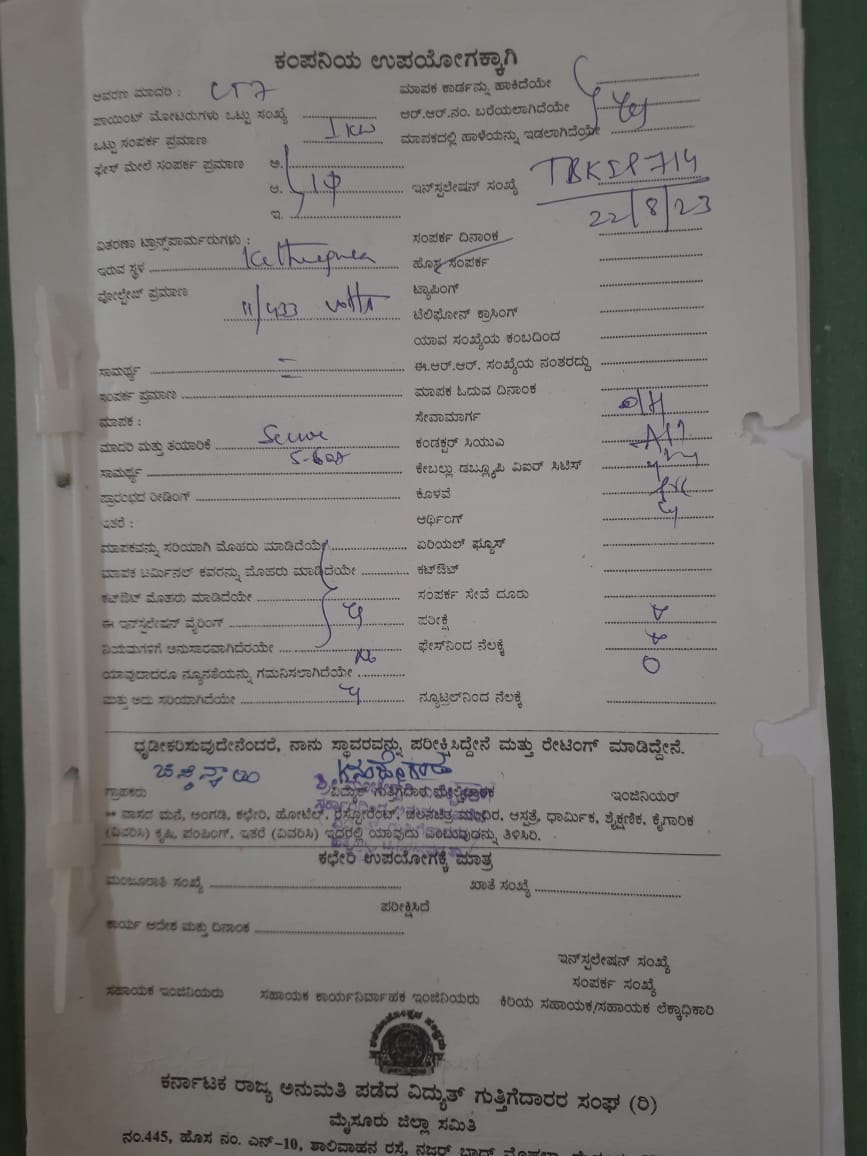 ಕಂಪನಿಯ ಉಪಯೋಗಕ್ಕಾಗಿ
ಆವರಣ ಮಾದರಿ : CT7 ಮಾಪಕ ಕಾರ್ಡನ್ನು ಹಾಕಿದೆಯೇ
ಪಾಯಿಂಟ್ ಮೋಟರುಗಳು ಒಟ್ಟು ಸಂಖ್ಯೆ ಆರ್.ಆರ್.ನಂ. ಬರೆಯಲಾಗಿದೆಯೇ
ಒಟ್ಟು ಸಂಪರ್ಕ ಪ್ರಮಾಣ 1 KW ಮಾಪಕದಲ್ಲಿ ಹಾಳೆಯನ್ನು ಇಡಲಾಗಿದೆಯೇ
ಫೇಸ್ ಮೇಲೆ ಸಂಪರ್ಕ ಪ್ರಮಾಣ ಅ.
ಆ. 1ϕ ಇನ್‌ಸ್ಟಲೇಷನ್ ಸಂಖ್ಯೆ TBKSP714
ಇ. 22/8/23
ವಿತರಣಾ ಟ್ರಾನ್ಸ್‌ಪಾರ್ಮರುಗಳು : ಸಂಪರ್ಕ ದಿನಾಂಕ
ಇರುವ ಸ್ಥಳ ಹೊಸ ಸಂಪರ್ಕ
ವೋಲ್ಟೇಜ್ ಪ್ರಮಾಣ ಟ್ಯಾಪಿಂಗ್
11/433 Volts ಟೆಲಿಫೋನ್ ಕ್ರಾಸಿಂಗ್
ಯಾವ ಸಂಖ್ಯೆಯ ಕಂಬದಿಂದ
ಸಾಮರ್ಥ್ಯ ಈ.ಆರ್.ಆರ್. ಸಂಖ್ಯೆಯ ನಂತರದ್ದು
ಸಂಪರ್ಕ ಪ್ರಮಾಣ ಮಾಪಕ ಓದುವ ದಿನಾಂಕ
ಮಾಪಕ : ಸೇವಾಮಾರ್ಗ O/H
ಮಾದರಿ ಮತ್ತು ತಯಾರಿಕೆ ಕಂಡಕ್ಟರ್ ಸಿಯುಎ
ಸಾಮರ್ಥ್ಯ ಕೇಬಲ್ಲು ಡಬ್ಲ್ಯೂಪಿ ವಿಐರ್ ಸಿಟಿಸ್
ಪ್ರಾರಂಭದ ರೀಡಿಂಗ್ ಕೊಳವೆ
ಇತರೆ : ಆರ್ಥಿಂಗ್
ಮಾಪಕವನ್ನು ಸರಿಯಾಗಿ ಮೊಹರು ಮಾಡಿದೆಯೇ ಏರಿಯಲ್ ಫ್ಯೂಸ್
ಮಾಪಕ ಟರ್ಮಿನಲ್ ಕವರನ್ನು ಮೊಹರು ಮಾಡಿದೆಯೇ ಕಟ್‌ಔಟ್
ಕಟ್‌ಔಟ್ ಮೊಹರು ಮಾಡಿದೆಯೇ ಸಂಪರ್ಕ ಸೇವೆ ದೂರು
ಈ ಇನ್‌ಸ್ಟಲೇಷನ್ ವೈರಿಂಗ್ ಪರೀಕ್ಷೆ
ನಿಯಮಗಳಿಗೆ ಅನುಸಾರವಾಗಿದೆರಯೇ ಫೇಸ್‌ನಿಂದ ನೆಲಕ್ಕೆ
ಯಾವುದಾದರೂ ನ್ಯೂನತೆಯನ್ನು ಗಮನಿಸಲಾಗಿದೆಯೇ No 0
ಮತ್ತು ಅದು ಸರಿಯಾಗಿದೆಯೇ ನ್ಯೂಟ್ರಲ್‌ನಿಂದ ನೆಲಕ್ಕೆ
ಧೃಡೀಕರಿಸುವುದೇನೆಂದರೆ, ನಾನು ಸ್ಥಾವರವನ್ನು ಪರೀಕ್ಷಿಸಿದ್ದೇನೆ ಮತ್ತು ರೇಟಿಂಗ್ ಮಾಡಿದ್ದೇನೆ.
ಗ್ರಾಹಕರು ವಿದ್ಯುತ್ ಗುತ್ತಿಗೆದಾರ ಇಂಜಿನಿಯರ್
** ವಾಸದ ಮನೆ, ಅಂಗಡಿ, ಕಛೇರಿ, ಹೋಟೆಲ್, ರೆಸ್ಟೋರೆಂಟ್, ಚಲನಚಿತ್ರ ಮಂದಿರ, ಆಸ್ಪತ್ರೆ, ಧಾರ್ಮಿಕ, ಶೈಕ್ಷಣಿಕ, ಕೈಗಾರಿಕ
(ವಿವರಿಸಿ) ಕೃಷಿ, ಪಂಪಿಂಗ್, ಇತರೆ (ವಿವರಿಸಿ) ಇದರಲ್ಲಿ ಯಾವುದು ಎಂಬುವುದನ್ನು ತಿಳಿಸಿರಿ.
ಕಛೇರಿ ಉಪಯೋಗಕ್ಕೆ ಮಾತ್ರ
ಮಂಜೂರಾತಿ ಸಂಖ್ಯೆ ಖಾತೆ ಸಂಖ್ಯೆ
ಪರೀಕ್ಷಿಸಿದೆ
ಕಾರ್ಯ ಆದೇಶ ಮತ್ತು ದಿನಾಂಕ
ಇನ್‌ಸ್ಟಲೇಷನ್ ಸಂಖ್ಯೆ
ಸಂಪರ್ಕ ಸಂಖ್ಯೆ
ಸಹಾಯಕ ಇಂಜಿನಿಯರು ಸಹಾಯಕ ಕಾರ್ಯನಿರ್ವಾಹಕ ಇಂಜಿನಿಯರು ಕಿರಿಯ ಸಹಾಯಕ/ಸಹಾಯಕ ಲೆಕ್ಕಾಧಿಕಾರಿ
ಕರ್ನಾಟಕ ರಾಜ್ಯ ಅನುಮತಿ ಪಡೆದ ವಿದ್ಯುತ್ ಗುತ್ತಿಗೆದಾರರ ಸಂಘ (ರಿ)
ಮೈಸೂರು ಜಿಲ್ಲಾ ಸಮಿತಿ
ನಂ.445, ಹೊಸ ನಂ. ಎನ್-10, ಶಾಲಿವಾಹನ ರಸ್ತೆ, ನಜರ್ ಬಾದ್ ಮೊಹಲ್ಲಾ,